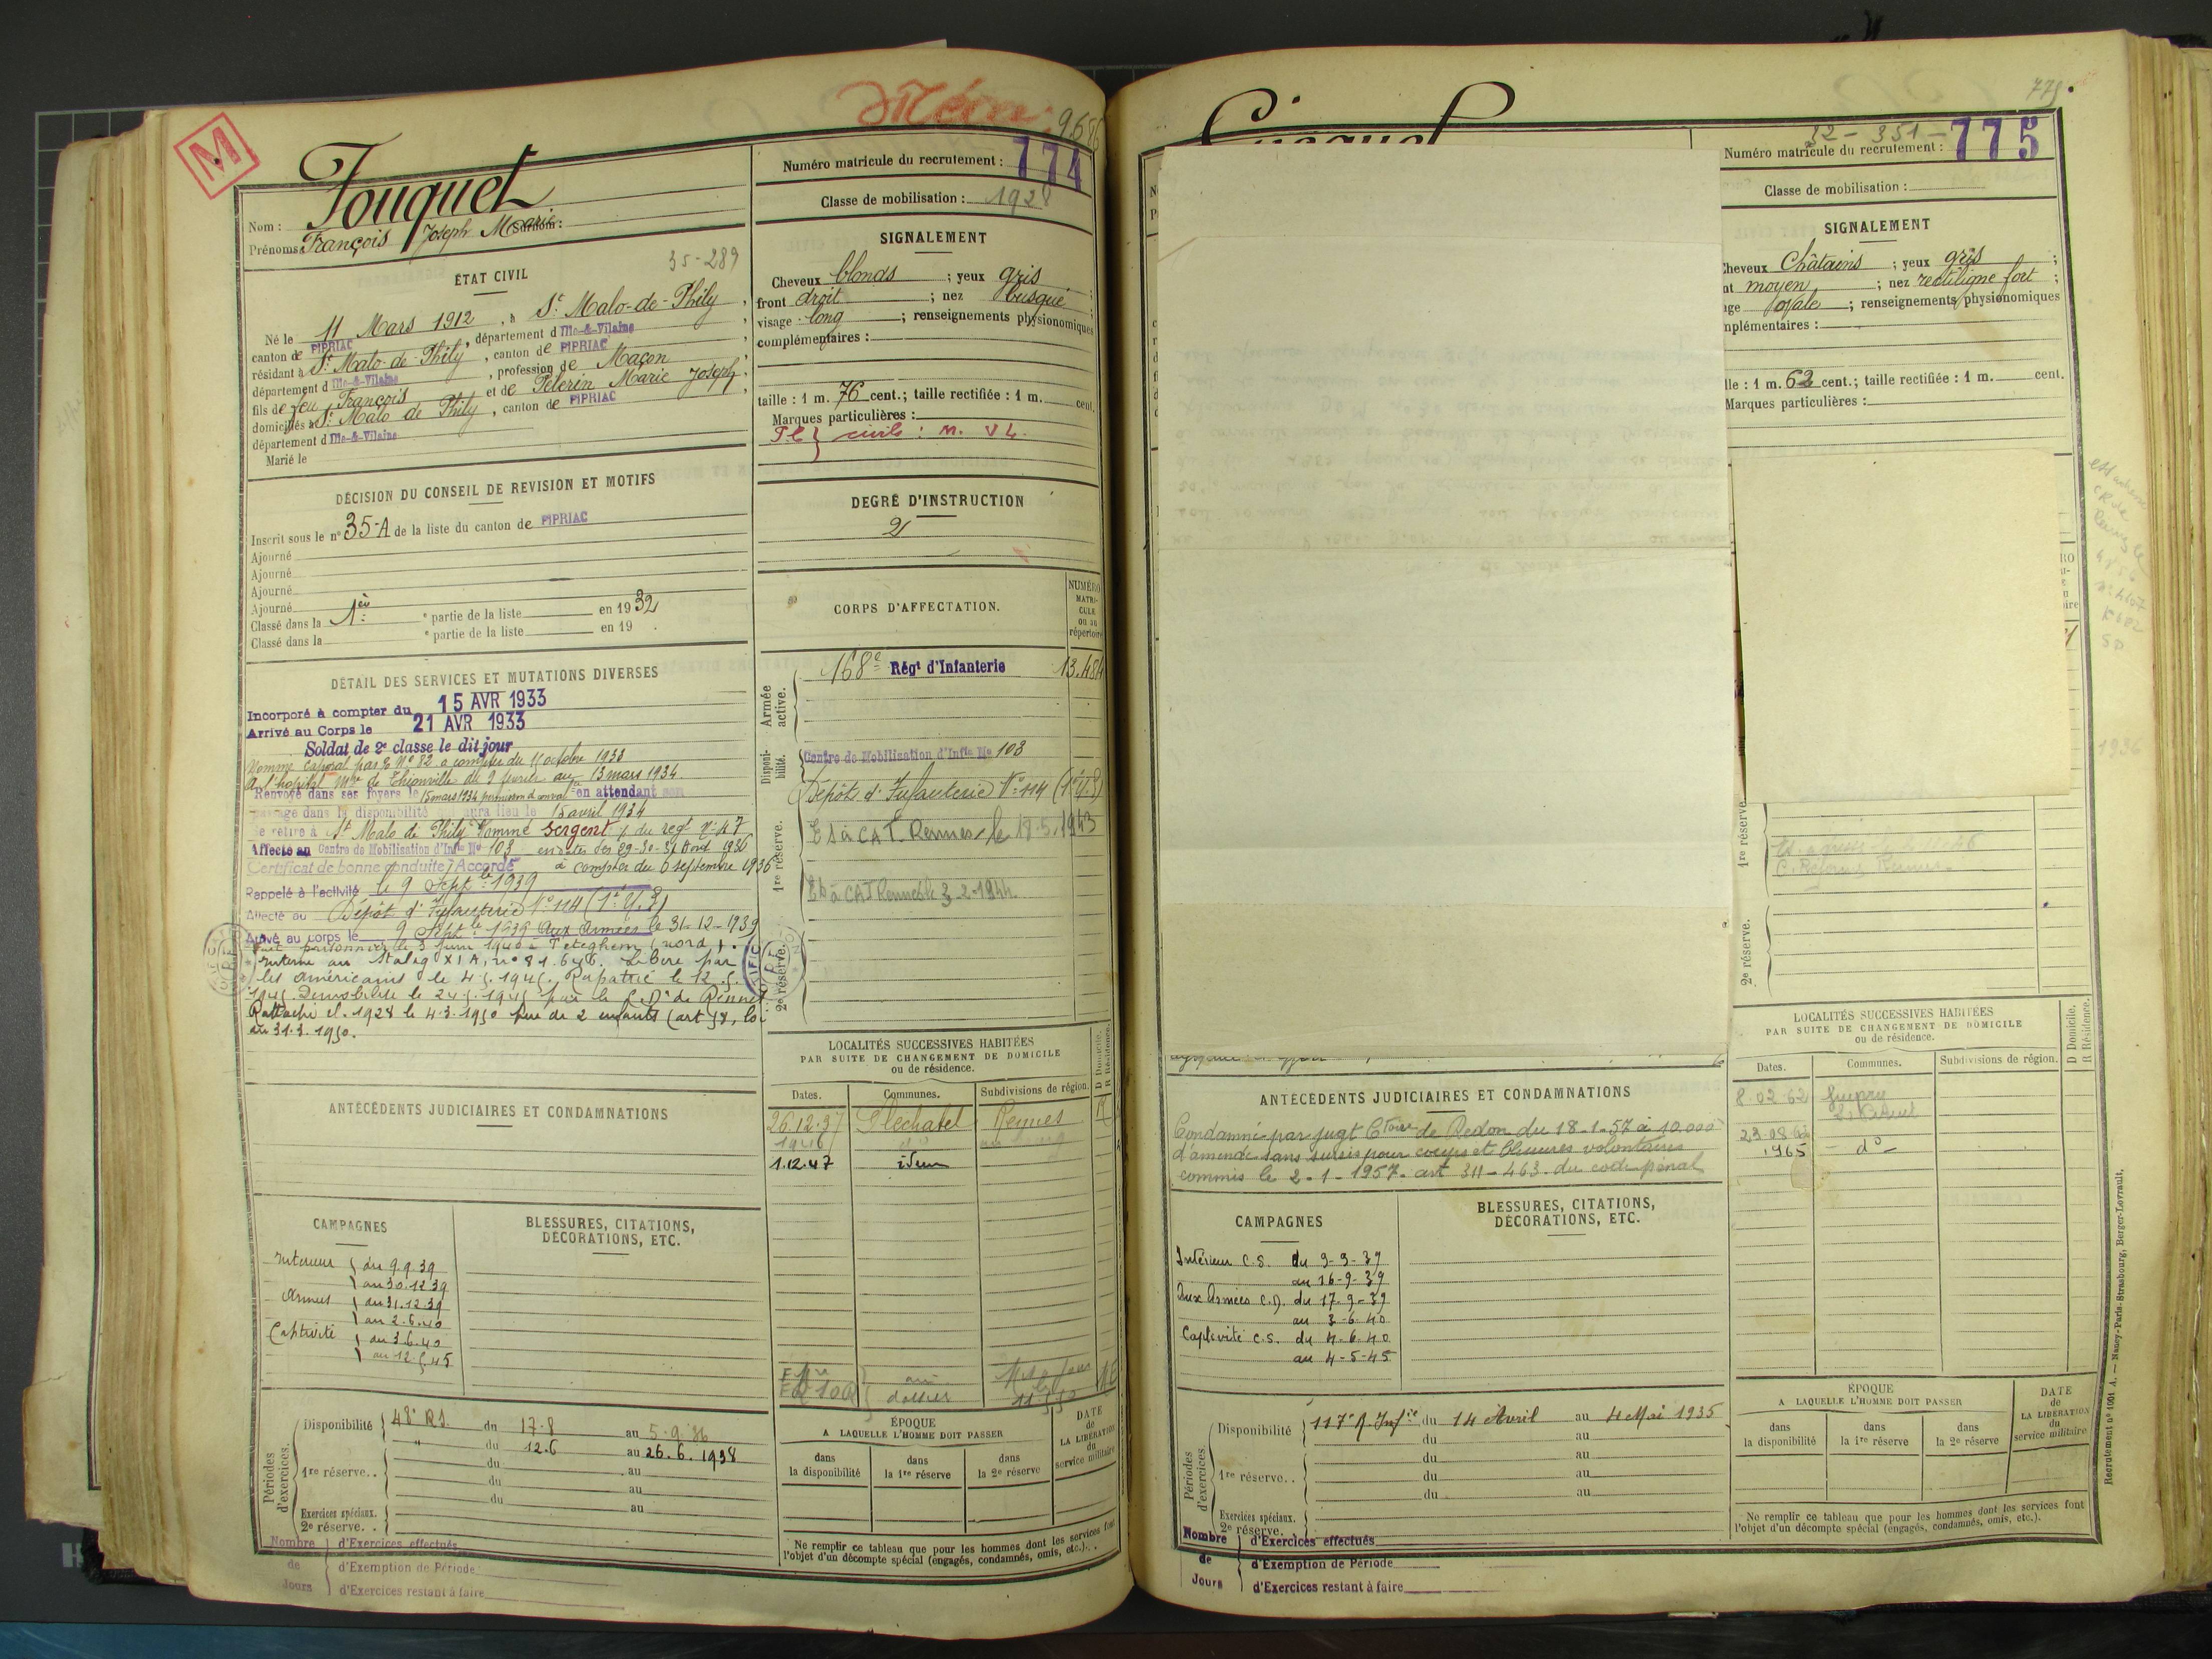 M
96
Fouquet
Nom :
Prénoms : François Joseph Marie Surnom :
35-289
ÉTAT CIVIL
Né le 11 Mars 1912, à St Malo-de-Phily,
canton de PIPRIAC, département d Ille-&-Vilaine,
résidant à St Malo-de-Phily, canton de PIPRIAC,
département d Ille-&-Vilaine, profession de Maçon
fils de feu François et de Pélerin Marie Joseph,
domiciliés à St Malo de Phily, canton de PIPRIAC,
département d Ille-&-Vilaine
Marié le
DÉCISION DU CONSEIL DE REVISION ET MOTIFS
Inscrit sous le n° 35-A de la liste du canton de PIPRIAC
Ajourné
Ajourné
Ajourné
Ajourné
Classé dans la 1ère partie de la liste en 1932
Classé dans la e partie de la liste en 19 .
DÉTAIL DES SERVICES ET MUTATIONS DIVERSES
Incorporé à compter du 15 AVR 1933
Arrivé au Corps le 21 AVR 1933
Soldat de 2e classe le dit jour
Nommé Caporal par E N° 82 à compter du 11 octobre 1933
A l'hôpital Mre de Thionville du 9 février au 13 mars 1934
Renvoyé dans ses foyers le 15 mars 1934 en attendant son
passage dans la disponibilité qui aura lieu le 15 avril 1934
Se retire à St Malo de Phily Nommé Sergent du regt N° 47
Affecté au Centre de Mobilisation d'Infie No 103 en dates des 29-30-31 Août 1936
Certificat de bonne conduite Accordé à compter du 6 septembre 1936
Rappelé à l'activité le 9 Septbre 1939
Affecté au Dépôt d'Infanterie N° 114 (1e U.S)
Arrivé au corps le 9 Septbre 1939 Aux Armées le 31-12-1939
Fait prisonnier le 3 Juin 1940 à Teteghem (nord).
Interné au Stalag XI A, n° 81.646. Libéré par
les américains le 4.5.1945. Rapatrié le 12.5.
1945 Démobilisé le 24.5.1945 par le C.D. de Rennes
Rattaché cl. 1928 le 4-3-1950 père de 2 enfants (art 58, loi
du 31.3.1950.
ANTÉCÉDENTS JUDICIAIRES ET CONDAMNATIONS
CAMPAGNES
Intérieur du 9.9.39
au 30.12.39
Armées du 31.12.39
au 2.6.40
Captivité du 3.6.40
au 12.5.45
BLESSURES, CITATIONS,
DÉCORATIONS, ETC.
Périodes d'exercices.
Disponibilité 48e R.I. du 17.8 au 5.9.36
" du 12.6 au 26.6.1938
1re réserve.. du au
du au
du au
Exercices spéciaux.
2e réserve. .
Nombre de Jours
d'Exercices effectués
d'Exemption de Période
d'Exercices restant à faire
Numéro matricule du recrutement : 774
Classe de mobilisation : 1928
SIGNALEMENT
Cheveux blonds ; yeux gris ;
front droit ; nez busqué ;
visage long ; renseignements physionomiques
complémentaires :
taille : 1 m. 76 cent.; taille rectifiée : 1 m. cent.
Marques particulières :
civile : M. V L.
DEGRÉ D'INSTRUCTION
2
CORPS D'AFFECTATION.
NUMÉRO
MATRI-
CULE
ou au
répertoire
Armée active.
168e Régt d'Infanterie 13.484
Disponi-bilité.
Centre de Mobilisation d'Infie No 103
Dépôt d'Infanterie N° 114 (1e U.S)
1re réserve.
à CAT. Rennes le 18.5.1943
à CAT Rennes le 3-2-1944
2e réserve.
LOCALITÉS SUCCESSIVES HABITÉES
PAR SUITE DE CHANGEMENT DE DOMICILE
ou de résidence.
Dates. Communes. Subdivisions de région. D Domicile. R Résidence.
26.12.37 Plechatel Rennes R
1946 do
1.12.47 idem
dossier
ÉPOQUE
A LAQUELLE L'HOMME DOIT PASSER
dans la disponibilité
dans la 1re réserve
dans la 2e réserve
DATE
de
LA LIBÉRATION
du
service militaire
Ne remplir ce tableau que pour les hommes dont les services font
l'objet d'un décompte spécial (engagés, condamnés, omis, etc.).
775
32-351-
Numéro matricule du recrutement : 775
Classe de mobilisation :
SIGNALEMENT
Cheveux Châtains ; yeux gris ;
nt moyen ; nez rectiligne fort ;
age ovale ; renseignements physionomiques
mplémentaires :
lle : 1 m. 62 cent.; taille rectifiée : 1 m. cent.
Marques particulières :
1936
1re réserve.
2e réserve.
LOCALITÉS SUCCESSIVES HABITÉES
PAR SUITE DE CHANGEMENT DE DOMICILE
ou de résidence.
Dates. Communes. Subdivisions de région. D Domicile. R Résidence.
8.02.62 Guipry
23.08.63
1965 - do -
ANTÉCÉDENTS JUDICIAIRES ET CONDAMNATIONS
Condamné par jugt Ctoire de Redon du 18-1-57 à 10.000
d'amende sans sursis pour coups et blessures volontaires
commis le 2-1-1957. art 311-463. du code pénal
CAMPAGNES
Intérieur C.S. du 9-9-39
au 16-9-39
Aux Armées C.D. du 17-9-39
au 3-6-40
Captivité C.S. du 4-6-40
au 4-5-45
BLESSURES, CITATIONS,
DÉCORATIONS, ETC.
Périodes d'exercices.
Disponibilité 117e R. Infie du 14 Avril au 4 Mai 1935
du au
du au
1re réserve. . du au
du au
Exercices spéciaux.
2e réserve.
Nombre de Jours
d'Exercices effectués
d'Exemption de Période
d'Exercices restant à faire
ÉPOQUE
A LAQUELLE L'HOMME DOIT PASSER
dans la disponibilité
dans la 1re réserve
dans la 2e réserve
DATE
de
LA LIBÉRATION
du
service militaire
Ne remplir ce tableau que pour les hommes dont les services font
l'objet d'un décompte spécial (engagés, condamnés, omis, etc.).
Recrutement n° 1001 A. — Nancy-Paris-Strasbourg, Berger-Levrault.